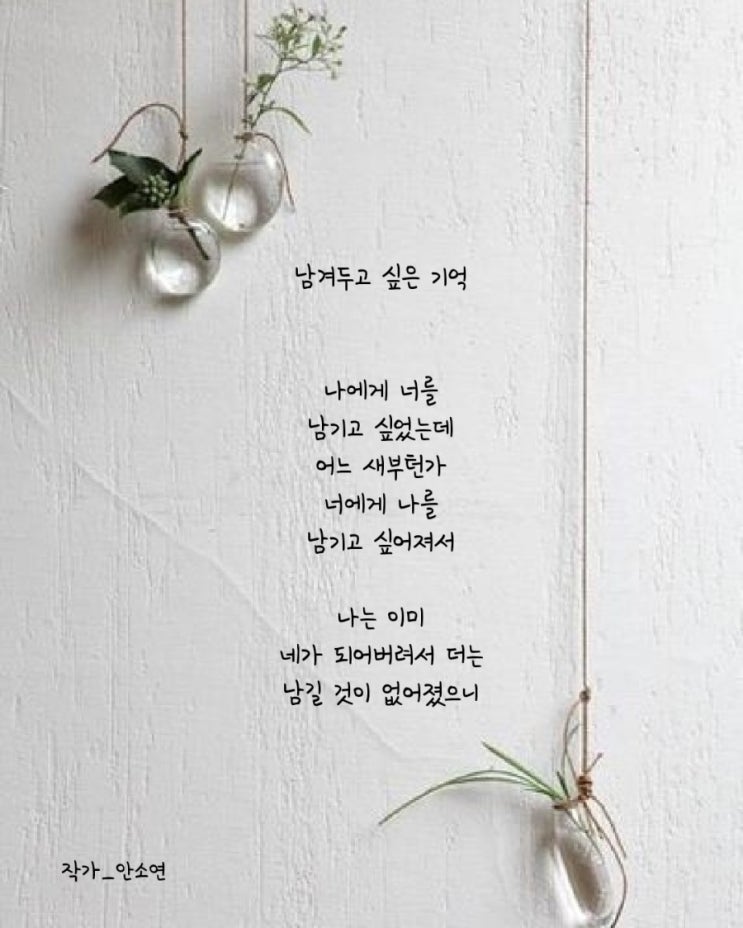 남겨두고 싶은 기억
나에게 너를
남기고 싶었는데
어느 새부턴가
너에게 나를
남기고 싶어져서
나는 이미
네가 되어버려서 더는
남길 것이 없어졌으니
작가_안소연